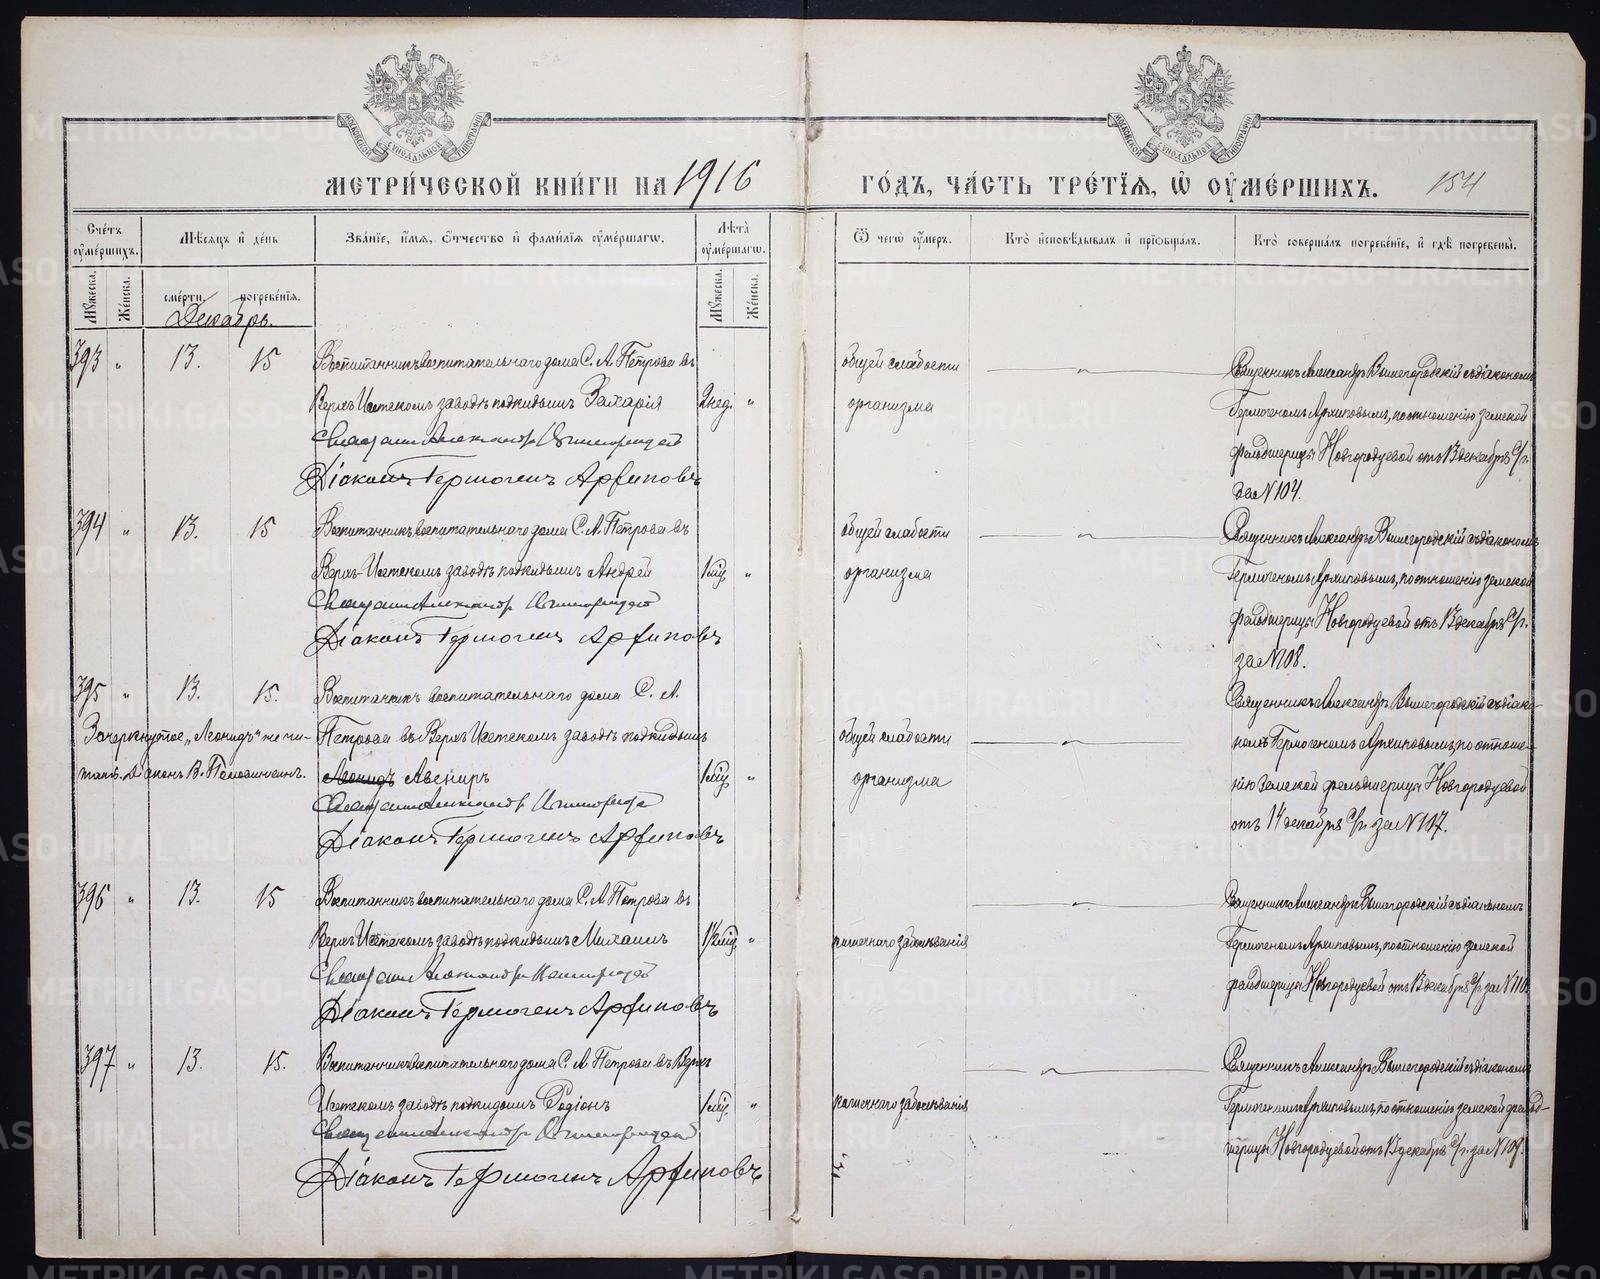 МЕТРИ́ЧЕСКОЙ КНИ́ГИ НА 1916
ГО́ДЪ, ЧА́СТЬ ТРЕ́ТЇѦ, Ѡ҆ ОУ҆МЕ́РШИХЪ. 154
Сче́тъ оу҆ме́ршихъ.
Мѣ́сѧцъ и҆ де́нь
Зва́нїе, и҆́мѧ, ѻ҆́тчество и҆ фами́лїѧ оу҆ме́ршагѡ.
Лѣ́та оу҆ме́ршагѡ.
Ѿ чегѡ̀ оу҆́меръ.
Кто̀ и҆сповѣ́дывалъ и҆ прїѡбща́лъ.
Кто̀ соверша́лъ погребе́нїе, и҆ гдѣ̀ погребены̀.
Мꙋ́жеска. Же́нска. сме́рти. погребе́нїѧ. Мꙋ́жеска. Же́нска.
Декабрь.
393 " 13. 15 Воспитанникъ воспитательнаго дома С. А. Петрова въ
Верхъ-Исетскомъ заводѣ подкидышъ Захарія 2 нед. "
Священникъ Александръ Вышегородскій
Діаконъ Гермогенъ Архиповъ
общей слабости
организма
Священникъ Александръ Вышегородскій съ діакономъ
Гермогеномъ Архиповымъ, по отношенію земской
фельдшерицы Новгородцевой отъ 13 декабря с/г.
за N 104.
394 " 13. 15 Воспитанникъ воспитательнаго дома С. А. Петрова въ
Верхъ-Исетскомъ заводѣ подкидышъ Андрей 1 мѣс. "
Священникъ Александръ Вышегородскій
Діаконъ Гермогенъ Архиповъ
общей слабости
организма
Священникъ Александръ Вышегородскій съ діакономъ
Гермогеномъ Архиповымъ, по отношенію земской
фельдшерицы Новгородцевой отъ 13 декабря с/г.
за N 108.
395 " 13. 15. Воспитанникъ воспитательнаго дома С. А.
Зачеркнутое "Леонидъ" не чи- Петрова въ Верхъ Исетскомъ заводѣ подкидышъ
тать. Діаконъ В. Леонидъ Авениръ 1 мѣс. "
Священникъ Александръ Вышегородскій
Діаконъ Гермогенъ Архиповъ
общей слабости
организма
Священникъ Александръ Вышегородскій съ діако-
номъ Гермогеномъ Архиповымъ, по отноше-
нію земской фельдшерицы Новгородцевой
отъ 14 декабря с/г. за N 117.
396 " 13. 15 Воспитанникъ воспитательнаго дома С. А. Петрова въ
Верхъ Исетскомъ заводѣ подкидышъ Михаилъ 1½ мѣс. "
Священникъ Александръ Вышегородскій
Діаконъ Гермогенъ Архиповъ
кишечнаго заболѣванія
Священникъ Александръ Вышегородскій съ діакономъ
Гермогеномъ Архиповымъ, по отношенію земской
фельдшерицы Новгородцевой отъ 13 декабря с/г. за N 110.
397 " 13. 15. Воспитанникъ воспитательнаго дома С. А. Петрова въ Верхъ
Исетскомъ заводѣ подкидышъ Родіонъ 1 мѣс. "
Священникъ Александръ Вышегородскій
Діаконъ Гермогенъ Архиповъ
кишечнаго заболѣванія
Священникъ Александръ Вышегородскій съ діакономъ
Гермогеномъ Архиповымъ, по отношенію земской фельд-
шерицы Новгородцевой отъ 13 декабря с/г. за N 109.
METRIKI.GASO-URAL.RU